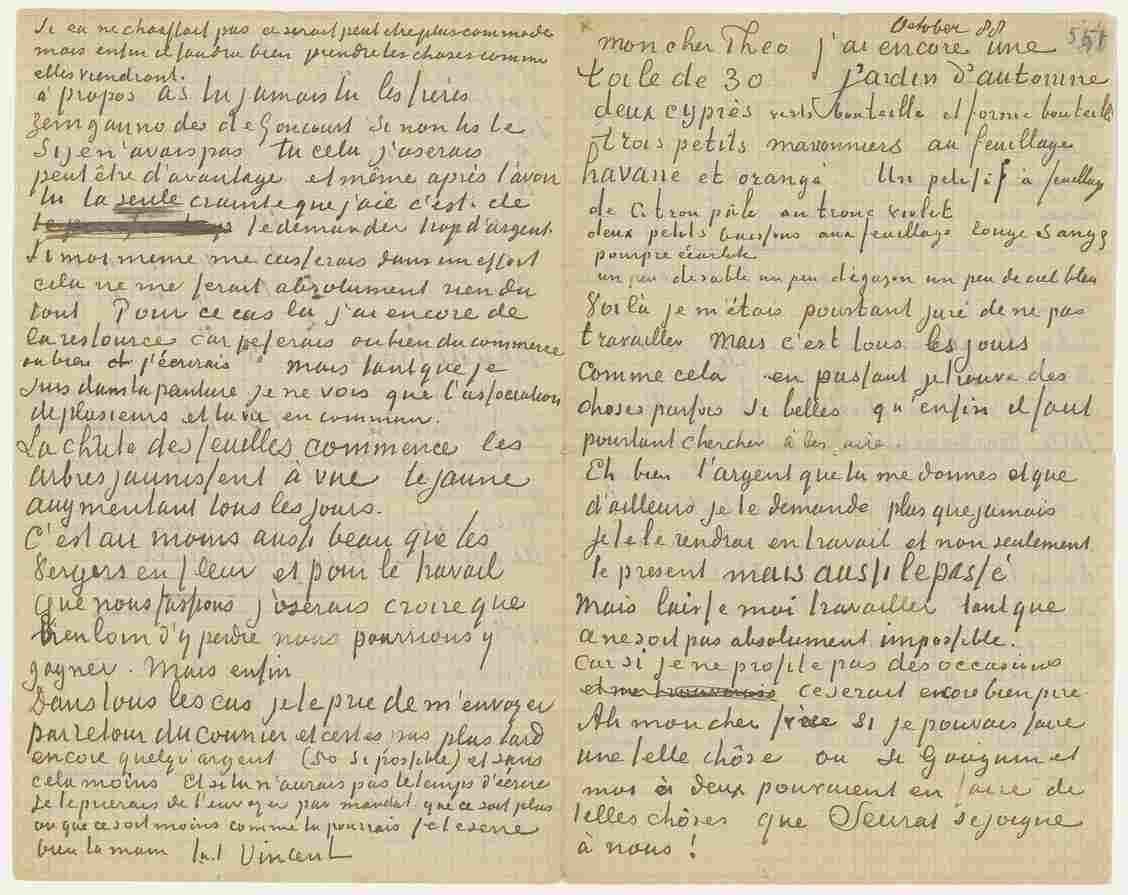 Si ça ne chauffait pas ce serait peutetre plus commode
mais enfin il faudra bien prendre les choses comme
elles viendront.
à propos as tu jamais lu les frères
Zemganno des de Goncourt si non lis le
Si je n'avais pas lu cela j'oserais
peut être d'avantage et même après l'avoir
lu la seule crainte que j'aie c'est de
te demander trop d'argent.
Si moi meme me casserais dans un effort
cela ne me ferait absolument rien du
tout Pour ce cas là j'ai encore de
la ressource car je ferais ou bien du commerce
ou bien j'écrirais mais tant que je
suis dans la peinture je ne vois que l'association
de plusieurs et la vie en commun.
La chute des feuilles commence les
arbres jaunissent à vue le jaune
augmentant tous les jours.
C'est au moins aussi beau que les
vergers en fleur et pour le travail
que nous fassions j'oserais croire que
bien loin d'y perdre nous pourrions y
gagner. Mais enfin
Dans tous les cas je te prie de m'envoyer
par retour du courrier et certes pas plus tard
encore quelqu'argent (50 si possible) et sans
cela moins Et si tu n'aurais pas le temps d'écrire
je te prierais de l'envoyer par mandat que ce soit plus
ou que ce soit moins comme tu pourrais je te serre
bien la main t.à.t Vincent
October 88
551
mon cher Theo j'ai encore une
toile de 30 jardin d'automne
deux cyprès verts bouteille et forme bouteille
trois petits maronniers au feuillage
havane et orangé Un petit if à feuillage
de citron pâle au tronc violet
deux petits buissons aux feuillage rouge sang
pourpre écarlate
un peu de sable un peu de gazon un peu de ciel bleu
Voilà je m'étais pourtant juré de ne pas
travailler Mais c'est tous les jours
comme cela en passant je trouve des
choses parfois si belles qu'enfin il faut
pourtant chercher à les faire.
Eh bien l'argent que tu me donnes et que
d'ailleurs je te demande plus que jamais
je te le rendrai en travail et non seulement
le present mais aussi le passé
Mais laisse moi travailler tant que
ça ne soit pas absolument impossible.
Car si je ne profite pas des occasions
ce serait encore bien pire.
Ah mon cher frère si je pouvais faire
une telle chôse ou si Gauguin et
moi à deux pouvaient en faire de
telles chôses que Seurat se joigne
à nous!